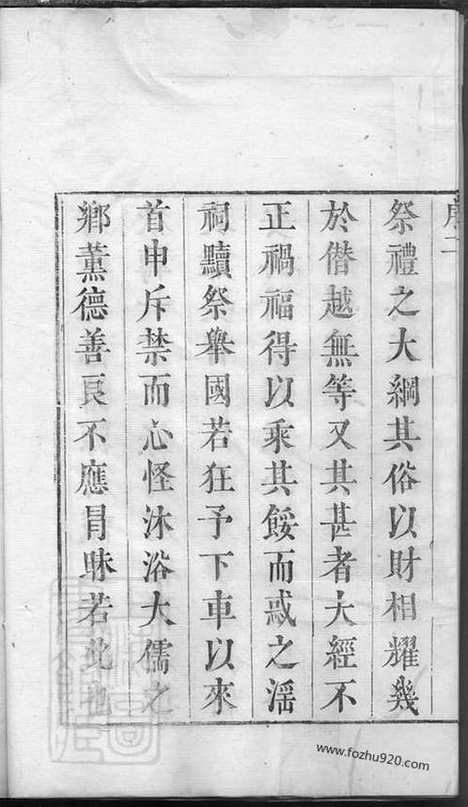 序二
祭禮之大綱其俗以財相耀幾
於僭越無等又其甚者大經不
正禍福得以乘其餒而惑之淫
祠黷祭舉國若狂予下車以來
首申斥禁而心怪沐浴大儒之
鄉薰德善良不應冒昧若此也
www.fozhu920.com